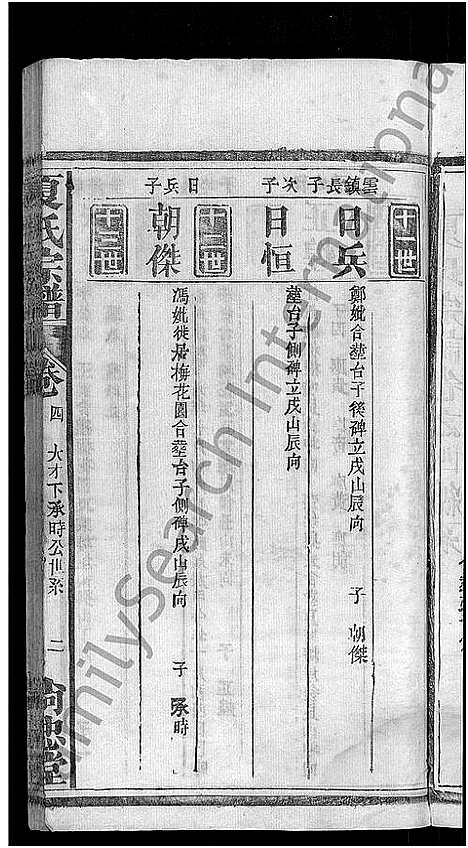 十一世
雲鎮長子
日兵
鄭妣合塟台子後碑立戌山辰向 子 朝傑
次子
日恒
塟台子側碑立戌山辰向
十二世
日兵子
朝傑
馮妣徙居梅花園合塟台子側碑戌山辰向 子 承時
十三世
夏氏宗譜 卷四 大才下承時公世系 二 尚忠堂
FamilySearch International